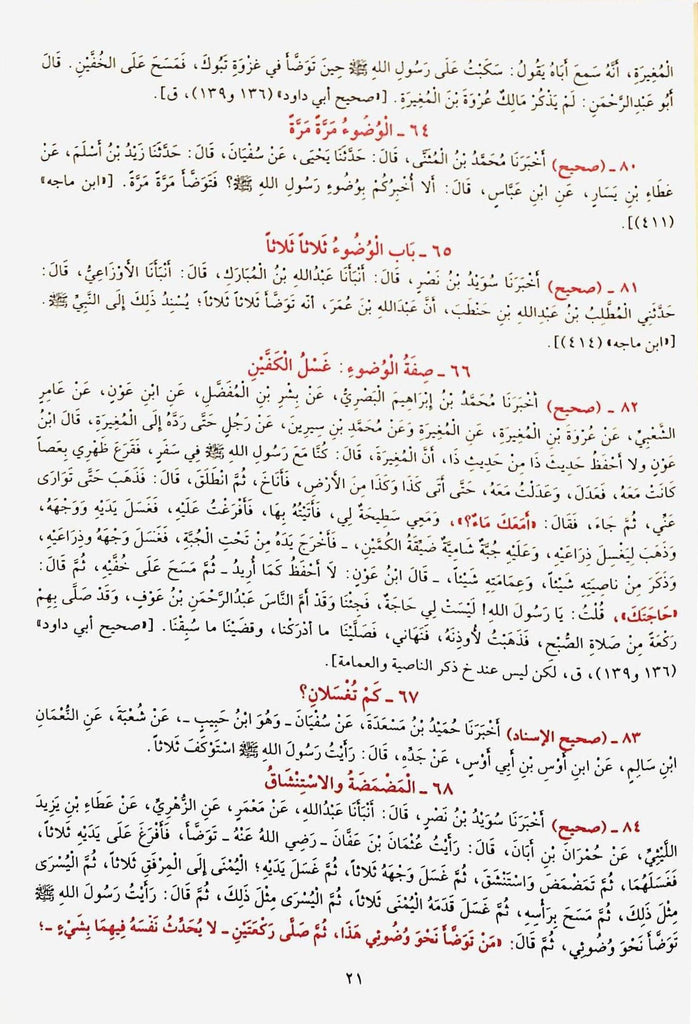 الْمُغِيرَةِ، أَنَّهُ سَمِعَ أَبَاهُ يَقُولُ: سَكَبْتُ عَلَى رَسُولِ اللهِ ﷺ حِينَ تَوَضَّأَ في غزْوَةِ تَبُوكَ، فَمَسَحَ عَلَى الْخُفَّيْنِ. قَالَ
أَبُو عَبْدِالرَّحْمَنِ: لَمْ يَذْكُرْ مَالِكٌ عُرْوَةَ بْنَ الْمُغِيرَةِ. [«صحيح أبي داود» (١٣٦ و١٣٩)، ق].
٦٤ ـ الْوُضُوءُ مَرَّةً مَرَّةً
٨٠ ـ (صحيح) أَخْبَرَنَا مُحَمَّدُ بْنُ الْمُثَنَّى، قَالَ: حَدَّثَنَا يَحْيَى، عَنْ سُفْيَانَ، قَالَ: حَدَّثَنَا زَيْدُ بْنُ أَسْلَمَ، عَنْ
عَطَاءِ بْنِ يَسَارٍ، عَنِ ابْنِ عَبَّاسٍ، قَالَ: أَلا أُخْبِرُكُمْ بِوُضُوءِ رَسُولِ اللهِ ﷺ؟ فَتَوَضَّأَ مَرَّةً مَرَّةً. [«ابن ماجه»
(٤١١)].
٦٥ ـ بَاب الْوُضُوءُ ثَلاثاً ثَلاثاً
٨١ ـ (صحيح) أَخْبَرَنَا سُوَيْدُ بْنُ نَصْرٍ، قَالَ: أَنْبَأَنَا عَبْدُاللهِ بْنُ الْمُبَارَكِ، قَالَ: أَنْبَأَنَا الْأَوْزَاعِيُّ، قَالَ:
حَدَّثَنِي الْمُطَّلِبُ بْنُ عَبْدِاللهِ بْنِ حَنْطَبَ، أَنَّ عَبْدَاللهِ بْنَ عُمَرَ، أنّه تَوَضَّأَ ثَلاثاً ثَلاثاً؛ يُسْنِدُ ذَلِكَ إِلَى النَّبِيِّ ﷺ.
[«ابن ماجه» (٤١٤)].
٦٦ ـ صِفَةُ الْوُضوءِ: غَسْلُ الْكَفَّيْنِ
٨٢ ـ (صحيح) أَخْبَرَنَا مُحَمَّدُ بْنُ إِبْرَاهِيمَ الْبَصْرِيُّ، عَنْ بِشْرِ بْنِ الْمُفَضَّلِ، عَنِ ابْنِ عَوْنٍ، عَنْ عَامِرٍ
الشَّعْبِيِّ، عَنْ عُرْوَةَ بْنِ الْمُغِيرَةِ، عَنِ الْمُغِيرَةِ وَعَنْ مُحَمَّدِ بْنِ سِيرِينَ، عَنْ رَجُلٍ حَتَّى رَدَّهُ إِلَى الْمُغِيرَةِ، قَالَ ابْنُ
عَوْنٍ ولا أَحْفَظُ حَدِيثَ ذَا مِنْ حَدِيثِ ذَا، أَنَّ الْمُغِيرَةَ، قَالَ: كُنَّا مَعَ رَسُولِ اللهِ ﷺ فِي سَفَرٍ، فَقَرَعَ ظَهْرِي بِعَصاً
كَانَتْ مَعَهُ، فَعَدَلَ، وَعَدَلْتُ مَعَهُ، حَتَّى أَتَى كَذَا وَكَذَا مِنَ الأَرْضِ، فَأَنَاخَ، ثُمَّ انْطَلَقَ، قَالَ: فَذَهَبَ حَتَّى تَوَارَى
عَنِّي، ثُمَّ جَاءَ، فَقَالَ: «أَمَعَكَ مَاءٌ؟»، وَمَعِي سَطِيحَةٌ لِي، فَأَتَيْتُهُ بِهَا، فَأَفْرَغْتُ عَلَيْهِ، فَغَسَلَ يَدَيْهِ وَوَجْهَهُ،
وَذَهَبَ لِيَغْسِلَ ذِرَاعَيْهِ، وَعَلَيْهِ جُبَّةٌ شَامِيَّةٌ ضَيِّقَةُ الْكُمَّيْنِ، ـ فَأَخْرَجَ يَدَهُ مِنْ تَحْتِ الْجُبَّةِ، فَغَسَلَ وَجْهَهُ وَذِرَاعَيْهِ،
وَذَكَرَ مِنْ نَاصِيَتِهِ شَيْئاً، وَعِمَامَتِهِ شَيْئاً، ـ قَالَ ابْنُ عَوْنٍ: لَا أَحْفَظُ كَمَا أُرِيدُ ـ ثُمَّ مَسَحَ عَلَى خُفَّيْهِ، ثُمَّ قَالَ:
«حَاجَتَكَ»، قُلْتُ: يَا رَسُولَ اللهِ! لَيْسَتْ لِي حَاجَةٌ، فَجِئْنَا وَقَدْ أَمَّ النَّاسَ عَبْدُالرَّحْمَنِ بْنُ عَوْفٍ، وَقَدْ صَلَّى بِهِمْ
رَكْعَةً مِنْ صَلاةِ الصُّبْحِ، فَذَهَبْتُ لأُوذِنَهُ، فَنَهَاني، فَصَلَّيْنَا مَا أَدْرَكْنَا، وقضَيْنَا مَا سُبِقْنَا. [«صحيح أبي داود»
(١٣٦ و١٣٩)، ق، لكن ليس عند خ ذكر الناصية والعمامة].
٦٧ ـ كَمْ تُغْسَلانِ؟
٨٣ ـ (صحيح الإسناد) أَخْبَرَنَا حُمَيْدُ بْنُ مَسْعَدَةَ، عَنْ سُفْيَانَ ـ وَهوَ ابْنُ حَبِيبٍ ـ، عَنْ شُعْبَةَ، عَنِ النُّعْمَانِ
ابْنِ سَالِمٍ، عَنْ ابنِ أَوْسِ بْنِ أَبِي أَوْسٍ، عَنْ جَدِّهِ، قَالَ: رَأَيْتُ رَسُولَ اللهِ ﷺ اسْتَوْكَفَ ثَلاثاً.
٦٨ ـ الْمَضْمَضَةُ والاسْتِنْشَاقُ
٨٤ ـ (صحيح) أَخْبَرَنَا سُوَيْدُ بْنُ نَصْرٍ، قَالَ: أَنْبَأَنَا عَبْدُاللهِ، عَنْ مَعْمَرٍ، عَنِ الزُّهْرِيِّ، عَنْ عَطَاءِ بْنِ يَزِيدَ
اللَّيْثِيِّ، عَنْ حُمْرَانَ بْنِ أَبَانَ، قَالَ: رَأَيْتُ عُثْمَانَ بْنَ عَفَّانَ ـ رَضِيَ اللهُ عَنْهُ ـ تَوَضَّأَ، فَأَفْرَغَ عَلَى يَدَيْهِ ثَلاثاً،
فَغَسَلَهُمَا، ثُمَّ تَمَضْمَضَ وَاسْتَنْشَقَ، ثُمَّ غَسَلَ وَجْهَهُ ثَلاثاً، ثُمَّ غَسَلَ يَدَيْهِ؛ الْيُمْنَى إِلَى الْمِرْفَقِ ثَلاثاً، ثُمَّ الْيُسْرَى
مِثْلَ ذَلِكَ، ثُمَّ مَسَحَ بِرَأْسِهِ، ثُمَّ غَسَلَ قَدَمَهُ الْيُمْنَى ثَلاثاً، ثُمَّ الْيُسْرَى مِثْلَ ذَلِكَ، ثُمَّ قَالَ: رَأَيْتُ رَسُولَ اللهِ ﷺ
تَوَضَّأَ نَحْوَ وُضُوئِي، ثُمَّ قَالَ: «مَنْ تَوَضَّأَ نَحْوَ وُضُوئِي هَذَا، ثُمَّ صَلَّى رَكْعَتَيْنِ ـ لا يُحَدِّثُ نَفْسَهُ فِيهِمَا بِشَيْءٍ ـ؛
٢١